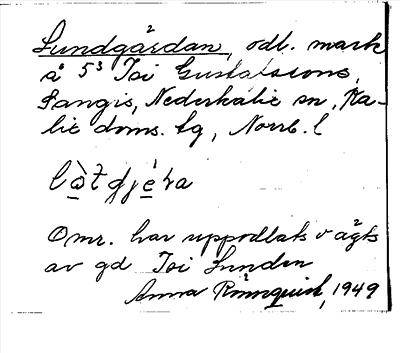 Lundgårdan, odl. mark
å 5³ Toi Gustafssons,
Sangis, Nederkalix sn, Ka-
lix doms. tg, Norrb. l
Omr. har uppodlats o ägts
av gd Toi Lunden
Anna Rönnquist, 1949